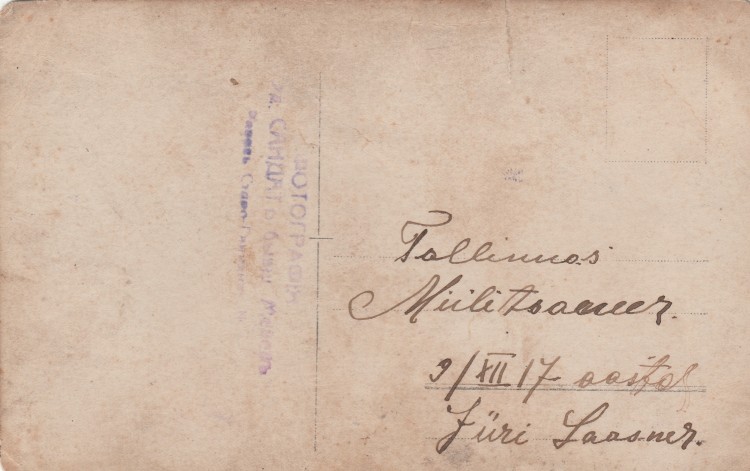 ФОТОГРАФІЯ
САНДАГО
Tallinnas
Miilitsamees.
9/XII 17 aastal
Jüri Laasner.